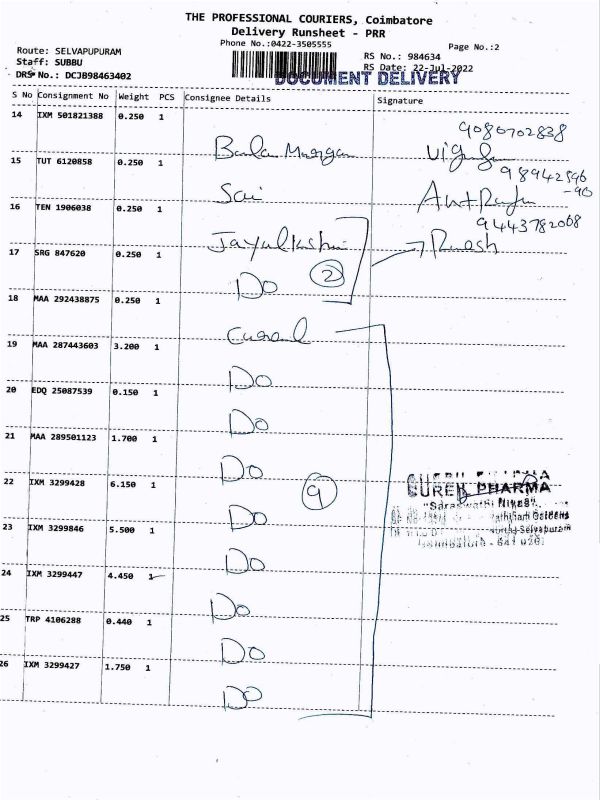 THE PROFESSIONAL COURIERS, Coimbatore
Delivery Runsheet - PRR
Phone No.:0422-3505555
Page No.:2
Route: SELVAPUPURAM
Staff: SUBBU
DRS No.: DCJB98463402
RS No.: 984634
RS Date: 22-Jul-2022
DOCUMENT DELIVERY
S No Consignment No Weight PCS Consignee Details Signature
14 IXM 501821388 0.250 1
9080702838
Bala Murugan
15 TUT 6120858 0.250 1
Sai
16 TEN 1906038 0.250 1
9443782068
Jayalakshmi
17 SRG 847620 0.250 1
Do 2
18 MAA 292438875 0.250 1
19 MAA 287443603 3.200 1
Do
20 EDQ 25087539 0.150 1
Do
21 MAA 289501123 1.700 1
Do
22 IXM 3299428 6.150 1
9
CUREN PHARMA
"Saraswathi Nivas",
Do
23 IXM 3299846 5.500 1
Do
24 IXM 3299447 4.450 1
Do
25 TRP 4106288 0.440 1
Do
26 IXM 3299427 1.750 1
Do